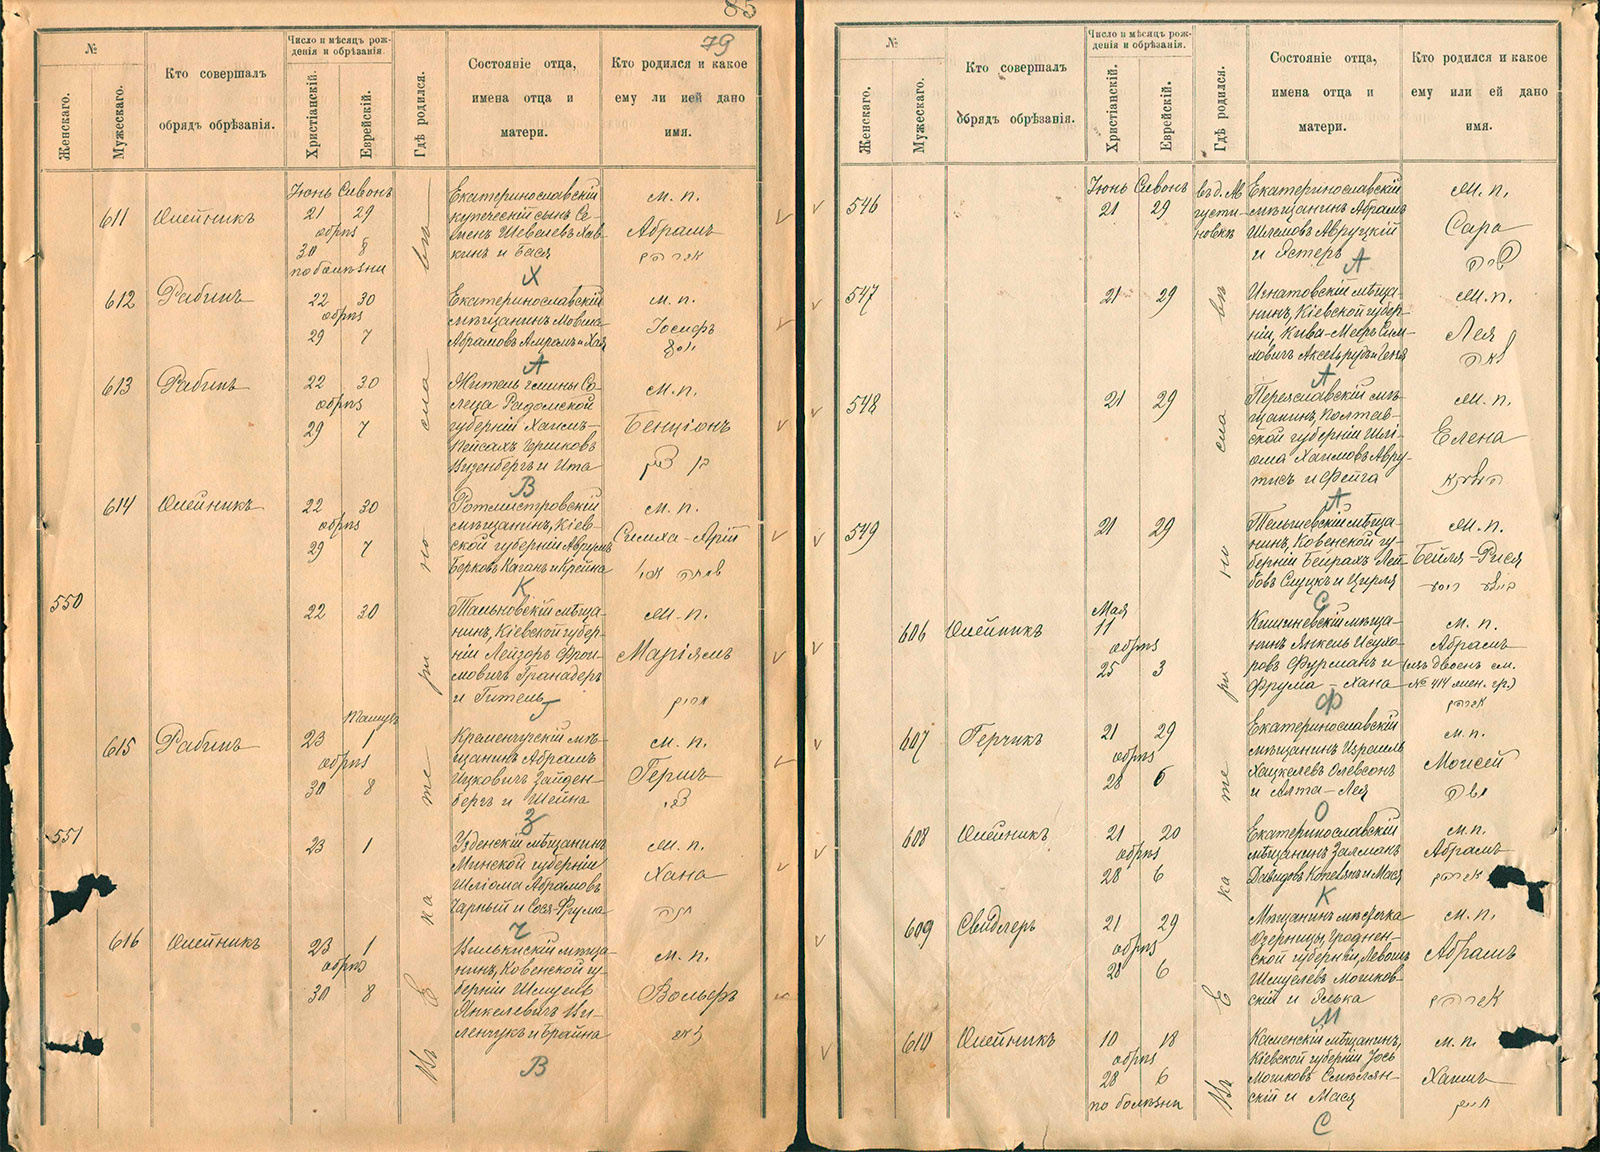 85
79
№
Женскаго.
Мужескаго.
Кто совершалъ
обрядъ обрѣзанія.
Число и мѣсяцъ рож-
денія и обрѣзанія.
Христіанскій.
Еврейскій.
Гдѣ родился.
Состояніе отца,
имена отца и
матери.
Кто родился и какое
ему ли ией дано
имя.
Въ Екатеринославѣ
611
Олейникъ
Іюнь Сивонъ
21 29
обрѣз
30 8
по болѣзни
Екатеринославскій
купеческій сынъ Се-
менъ Шевелевъ Хав-
кинъ и Бася
Х
м. п.
Абрамъ
612
Рабинъ
22 30
обрѣз
29 7
Екатеринославскій
мѣщанинъ Мовша
Абрамовъ Амрамъ и Хая
А
м. п.
Іосифъ
613
Рабинъ
22 30
обрѣз
29 7
Житель гмины Со-
леца Радомской
губерніи Хаимъ-
Пейсахъ Гершковъ
Визенбергъ и Ита
В
м. п.
Бенціонъ
בן ציון
614
Олейникъ
22 30
обрѣз
29 7
Ротмистровскій
мѣщанинъ, Кіев-
ской губерніи Аврумъ
Берковъ Каганъ и Крейна
К
м. п.
Симха-Арій
550
22 30
Тальновскій мѣща-
нинъ, Кіевской губер-
ніи Лейзоръ Фрои-
мовичъ Гранадеръ
и Гитель
м. п.
Маріямъ
מרים
615
Рабинъ
Тамузъ
23 1
обрѣз
30 8
Кременчугскій мѣ-
щанинъ Абрамъ
Ицковичъ Зайден-
бергъ и Шейна
З
м. п.
Гершъ
צבי
551
23 1
Узденскій мѣщанинъ
Минской губерніи
Шліома Абрамовъ
Чарный и Сося-Фрума
Ч
м. п.
Хана
חנה
616
Олейникъ
23 1
обрѣз
30 8
Вилькискій мѣща-
нинъ, Ковенской гу-
берніи Шмуель
Янкелевичъ Ви-
ленчукъ и Брайна
В
м. п.
Вольфъ
№
Женскаго.
Мужескаго.
Кто совершалъ
обрядъ обрѣзанія.
Число и мѣсяцъ рож-
денія и обрѣзанія.
Христіанскій.
Еврейскій.
Гдѣ родился.
Состояніе отца,
имена отца и
матери.
Кто родился и какое
ему или ей дано
имя.
Въ Екатеринославѣ
546
Іюнь Сивонъ
21 29
въ д. Ав
густи-
новкѣ
Екатеринославскій
мѣщанинъ Абрамъ
Шлемовъ Авруцкій
и Эстеръ
А
м. п.
Сара
שרה
547
21 29
Игнатовскій мѣща-
нинъ, Кіевской губер-
ніи, Кива-Мееръ Сим-
ховичъ Аксельрудъ и Геня
А
м. п.
Лея
לאה
548
21 29
Переяславскій мѣ-
щанинъ, Полтав-
ской губерніи Шлі-
ома Хаимовъ Авру-
тисъ и Фейга
А
м. п.
Елена
549
21 29
Тельшевскій мѣща-
нинъ, Ковенской гу-
берніи Бейрахъ Лей-
бовъ Слуцкъ и Цирля
С
м. п.
Бейля-Рися
606
Олейникъ
Мая
11
обрѣз
25 3
Кишиневскій мѣща-
нинъ Янкель Исухо-
ровъ Фурманъ и
Фрума-Хана
Ф
м. п.
Абрамъ
(изъ двоенъ см.
№ 414 жен. гр.)
607
Герчикъ
21 29
обрѣз
28 6
Екатеринославскій
мѣщанинъ Израиль
Хацкелевъ Олевсонъ
и Элта-Лея
О
м. п.
Моисей
משה
608
Олейникъ
21 20
обрѣз
28 6
Екатеринославскій
мѣщанинъ Залманъ
Давидовъ Копелянъ и Мася
К
м. п.
Абрамъ
609
Свидлеръ
21 29
обрѣз
28 6
Мѣщанинъ мѣстечка
Озерницы, Гроднен-
ской губерніи, Левошъ
Шмуелевъ Мошков-
скій и Элька
М
м. п.
Абрамъ
אברהם
610
Олейникъ
10 18
обрѣз
28 6
по болѣзни
Каменскій мѣщанинъ,
Кіевской губерніи Іось
Мошковъ Смѣлян-
скій и Мася
С
м. п.
Хаимъ
חיים